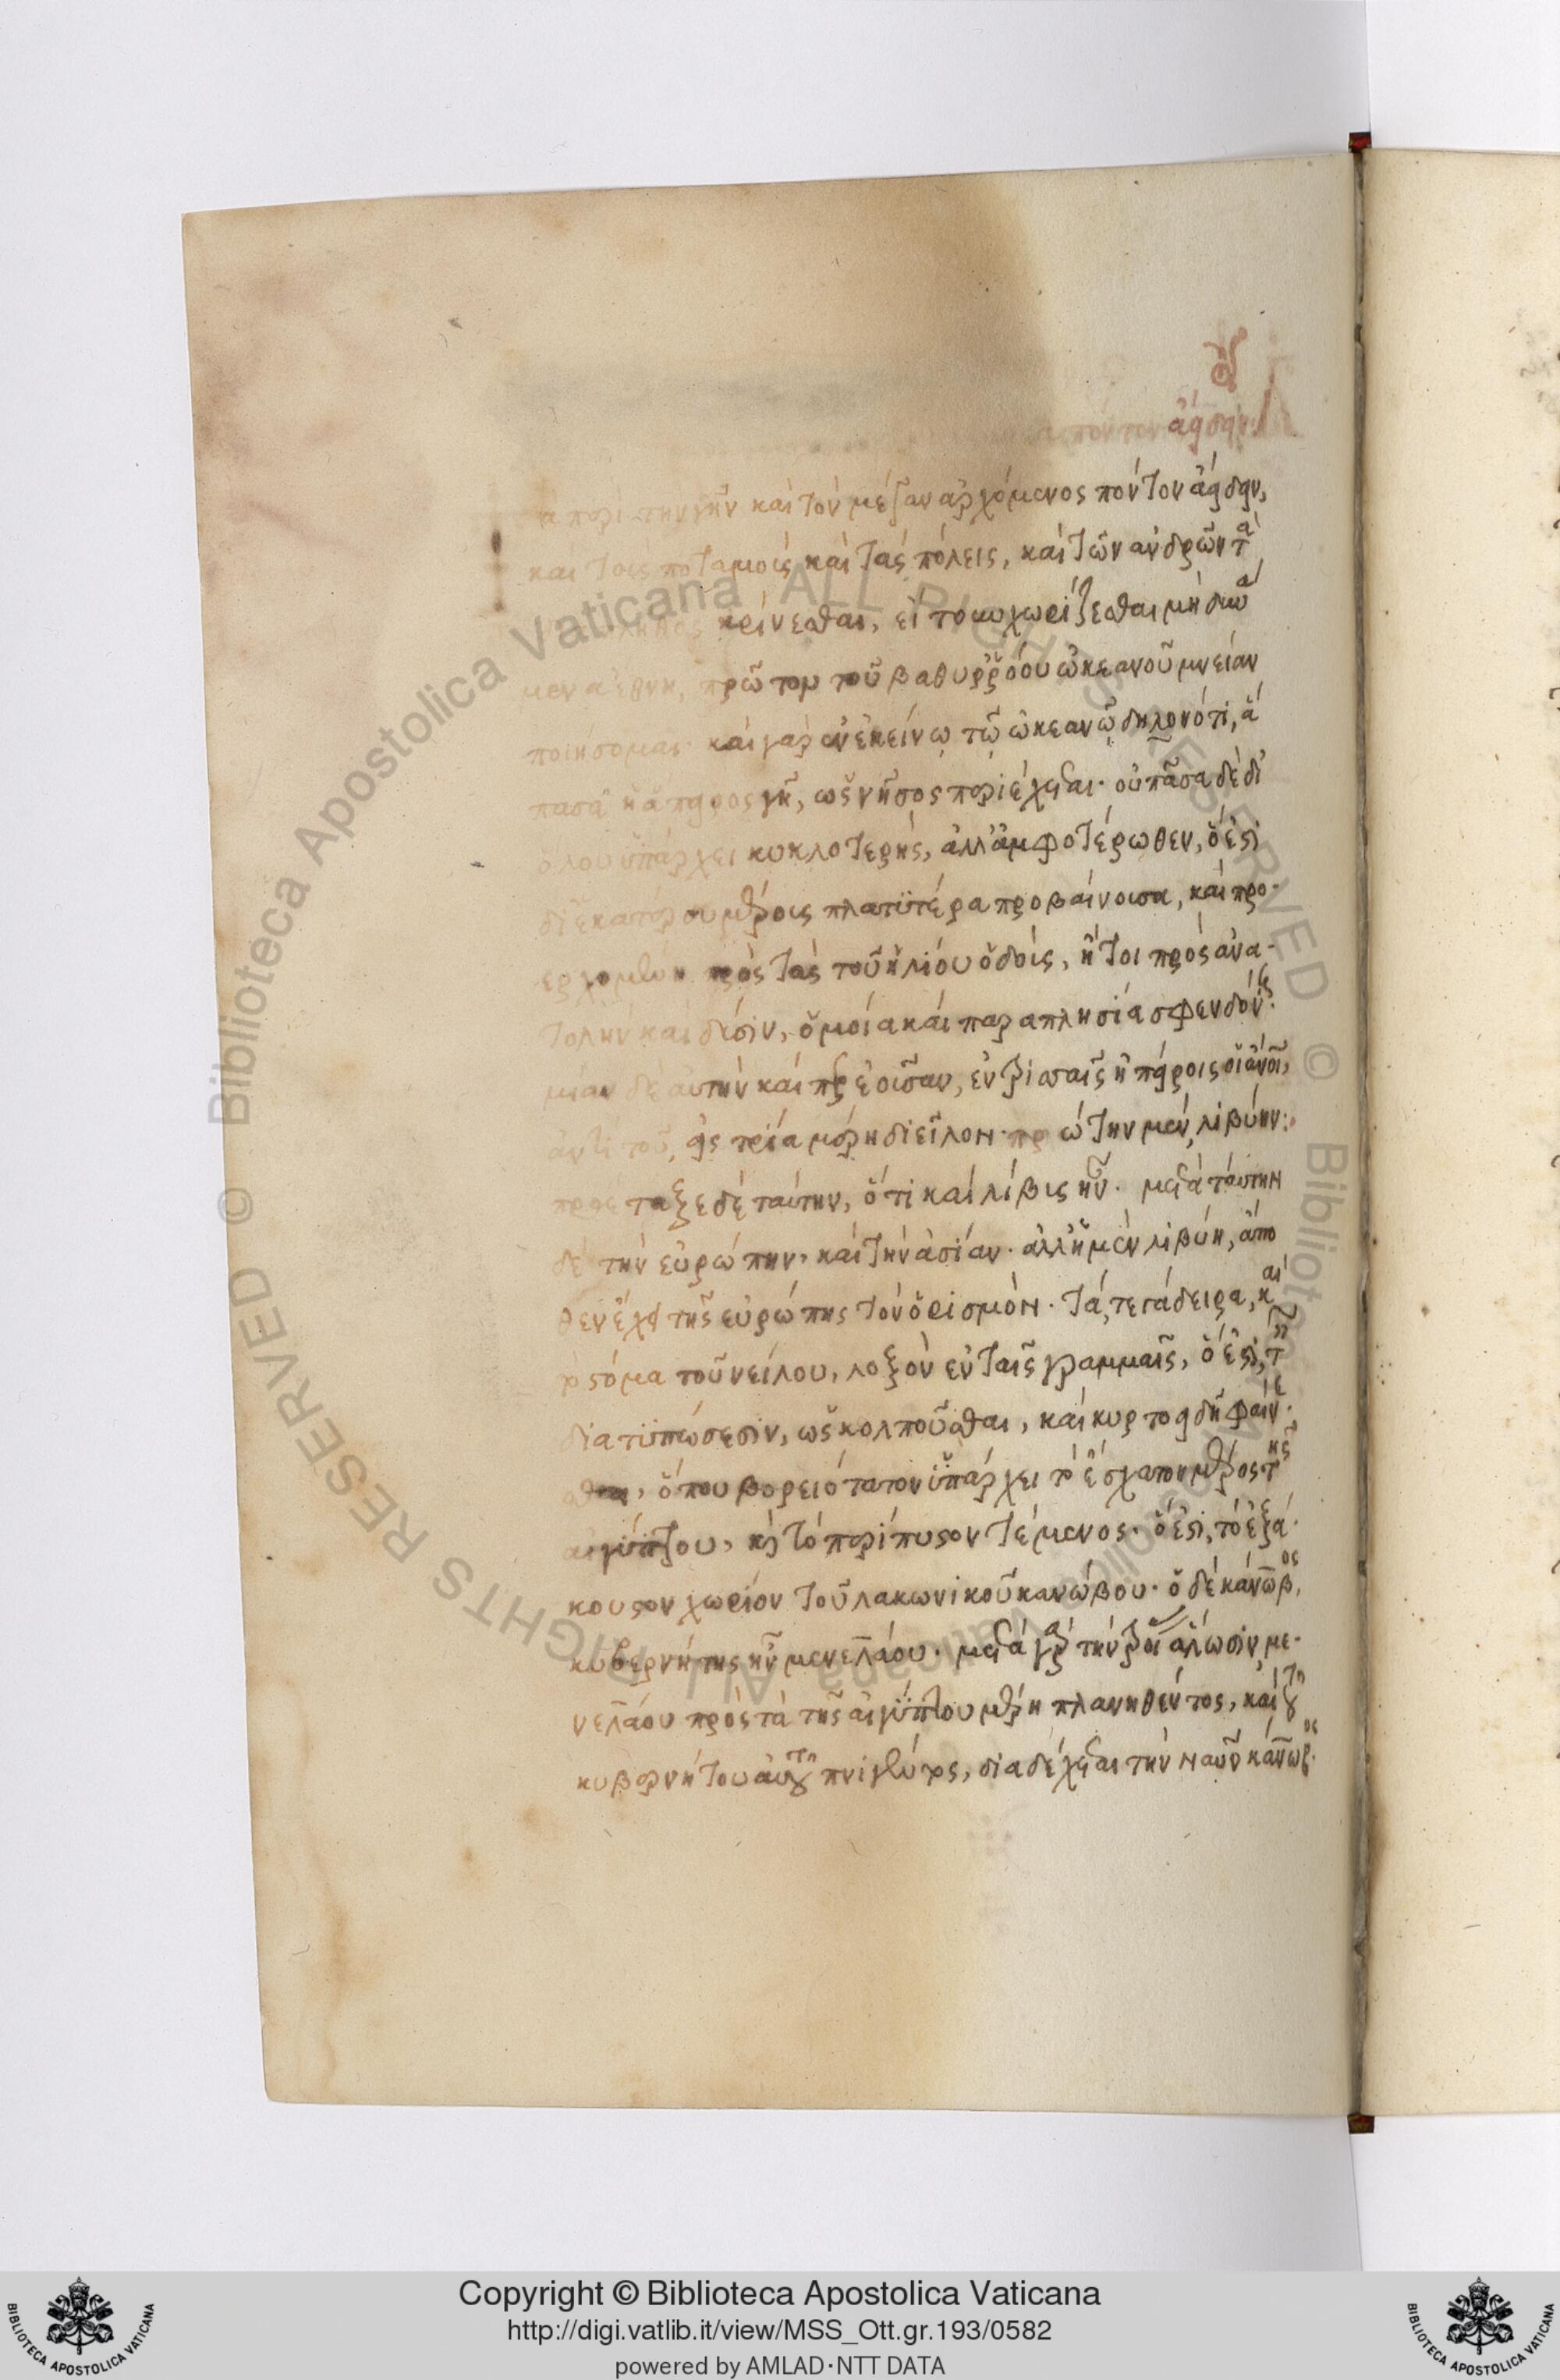 ἀείδειν
περὶ τὴν γῆν καὶ τὸν μέγαν ἀρχόμενος πόντον ἀείδειν,
καὶ τοὺς ποταμοὺς καὶ τὰς πόλεις, καὶ τῶν ἀνδρῶν τὰ
κρίνεσθαι, εἴτουν χωρίζεσθαι μὴ δυνά
μενα ἔθνη, πρῶτον τοῦ βαθυρρόου ὠκεανοῦ μνείαν
ποιήσομαι· καὶ γὰρ ἐν ἐκείνω τῶ ὠκεανῶ δηλονότι, ἅ
πασα ἡ ἄπειρος γῆ, ὡς νῆσος περιέχεται· οὐ πᾶσα δὲ δι
όλου ὑπάρχει κυκλοτερής, ἀλλ' ἀμφοτέρωθεν, ὅ ἐστι
δι' ἑκατέρου μέρους πλατυτέρα προβαίνουσα, καὶ προ·
ερχομένη πρὸς τὰς τοῦ ἡλίου ὁδούς, ἤτοι πρὸς ἀνα·
τολὴν καὶ δύσιν, ὁμοία καὶ παραπλησία σφενδόνης·
μίαν δὲ αὐτὴν καὶ περ ἐοῦσαν, ἐν τρισσαῖς ἠπείροις οἱ ἄνοι,
ἀντὶ τοῦ, εἰς τρία μέρη διεῖλον· πρώτην μὲν, λιβύην:
προέταξε δὲ ταύτην, ὅτι καὶ λίβυς ἦν· μετὰ ταύτην
δὲ τὴν εὐρώπην· καὶ τὴν ἀσίαν· ἀλλ' ἡ μὲν λιβύη, ἄπο
θεν ἔχει τῆς εὐρώπης τὸν ὁρισμὸν· τά, τε γάδειρα, καὶ
τὸ στόμα τοῦ νείλου, λοξὸν ἐν ταῖς γραμμαῖς, ὅ ἐστι,
διατυπώσεσιν, ὡς κολποῦσθαι, καὶ κυρτοειδῆ φαίνε·
σθαι, ὅπου βορειότατον ὑπάρχει τὸ ἔσχατον μέρος τῆς
αἰγύπτου, καὶ τὸ περίπυστον τέμενος· ὅ ἐστι, τὸ ἐξά·
κουστον χωρίον τοῦ λακωνικοῦ κανώβου· ὁ δὲ κάνωβος,
κυβερνήτης ἦν μενελάου· μετὰ γὰρ τὴν τροί ἅλωσιν, με·
νελάου πρὸς τὰ τῆς αἰγύπτου μέρη πλανηθέντος, καὶ τοῦ
κυβερνήτου αὐτοῦ πνιγέντος, διαδέχεται τὴν ναῦν κάνωβος·
Copyright © Biblioteca Apostolica Vaticana
http://digi.vatlib.it/view/MSS_Ott.gr.193/0582
powered by AMLAD·NTT DATA